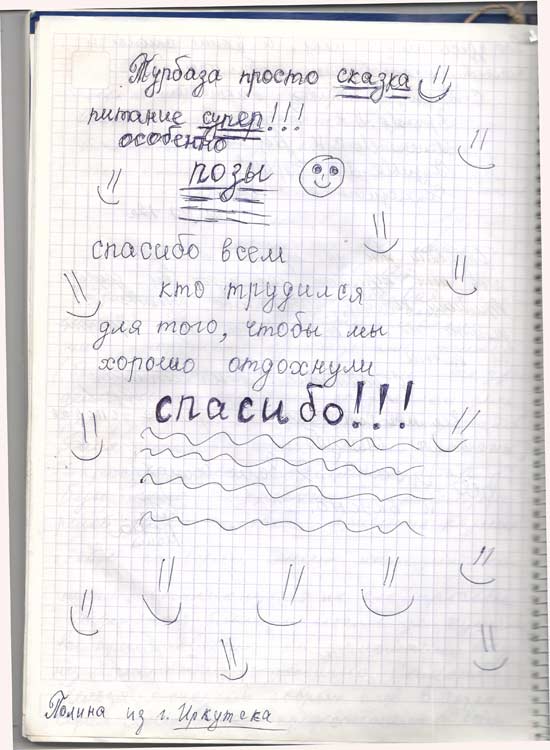 Турбаза просто сказка
питание супер!!!
особенно
позы
спасибо всем
кто трудился
для того, чтобы мы
хорошо отдохнули
спасибо!!!
Полина из г. Иркутска